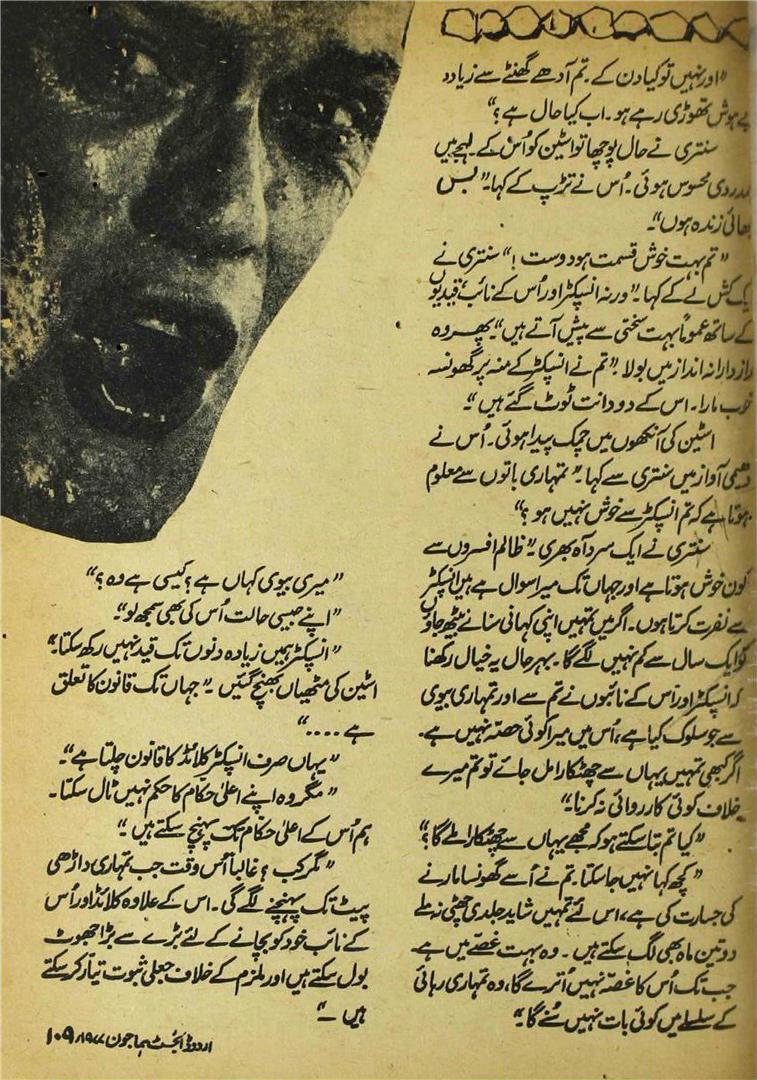 ”اور نہیں تو کیا دن کے۔ تم آدھے گھنٹے سے زیادہ
بے ہوش تھوڑی رہے ہو۔ اب کیا حال ہے؟“
سنتری نے حال پوچھا تو اسٹین کو اُس کے لہجے میں
ہمدردی محسوس ہوئی۔ اُس نے تڑپ کے کہا۔ ”بس
بھائی زندہ ہوں“۔
”تم بہت خوش قسمت ہو دوست!“ سنتری نے
ایک کش لے کے کہا۔ ”ورنہ انسپکٹر اور اُس کے نائب، قیدیوں
کے ساتھ عموماً بہت سختی سے پیش آتے ہیں“۔ پھر وہ
رازدارانہ انداز میں بولا۔ ”تم نے انسپکٹر کے منہ پر گھونسہ
خوب مارا۔ اس کے دو دانت ٹوٹ گئے ہیں“۔
اسٹین کی آنکھوں میں چمک پیدا ہوئی۔ اُس نے
دھیمی آواز میں سنتری سے کہا۔ ”تمہاری باتوں سے معلوم
ہوتا ہے کہ تم انسپکٹر سے خوش نہیں ہو؟“
سنتری نے ایک سرد آہ بھری۔ ”ظالم افسروں سے
کون خوش ہوتا ہے اور جہاں تک میرا سوال ہے میں انسپکٹر
سے نفرت کرتا ہوں۔ اگر میں تمہیں اپنی کہانی سنانے بیٹھ جاؤں
تو ایک سال سے کم نہیں لگے گا۔ بہر حال یہ خیال رکھنا
کہ انسپکٹر اور اس کے نائبوں نے تم سے اور تمہاری بیوی
سے جو سلوک کیا ہے، اُس میں میرا کوئی حصہ نہیں ہے۔
اگر کبھی تمہیں یہاں سے چھٹکارا مل جائے تو تم میرے
خلاف کوئی کارروائی نہ کرنا۔“
”کیا تم بتا سکتے ہو کہ مجھے یہاں سے چھٹکارا ملے گا؟“
”کچھ کہا نہیں جا سکتا۔ تم نے اُسے گھونسا مارنے
کی جسارت کی ہے، اس لئے تمہیں شاید جلدی چھٹی نہ ملے
دو تین ماہ بھی لگ سکتے ہیں۔ وہ بہت غصے میں ہے۔
جب تک اُس کا غصہ نہیں اُترے گا، وہ تمہاری رہائی
کے سلسلے میں کوئی بات نہیں سُنے گا۔“
”میری بیوی کہاں ہے؟ کیسی ہے وہ؟“
”اپنے جیسی حالت اُس کی بھی سمجھ لو“۔
”انسپکٹر ہمیں زیادہ دنوں تک قید نہیں رکھ سکتا۔“
اسٹین کی مٹھیاں بھنچ گئیں۔ ”جہاں تک قانون کا تعلق
ہے ....“
”یہاں صرف انسپکٹر کلائڈ کا قانون چلتا ہے“۔
”مگر وہ اپنے اعلیٰ حکام کا حکم نہیں ٹال سکتا۔
ہم اُس کے اعلیٰ حکام تک پہنچ سکتے ہیں۔“
”مگر کب؟ غالباً اُس وقت جب تمہاری داڑھی
پیٹ تک پہنچنے لگے گی۔ اس کے علاوہ کلائڈ اور اُس
کے نائب خود کو بچانے کے لئے بڑے سے بڑا جھوٹ
بول سکتے ہیں اور ملزم کے خلاف جعلی ثبوت تیار کر سکتے
ہیں۔“
اردو ڈائجسٹ ہما جون ۱۹۷۷ء ۱۰۹